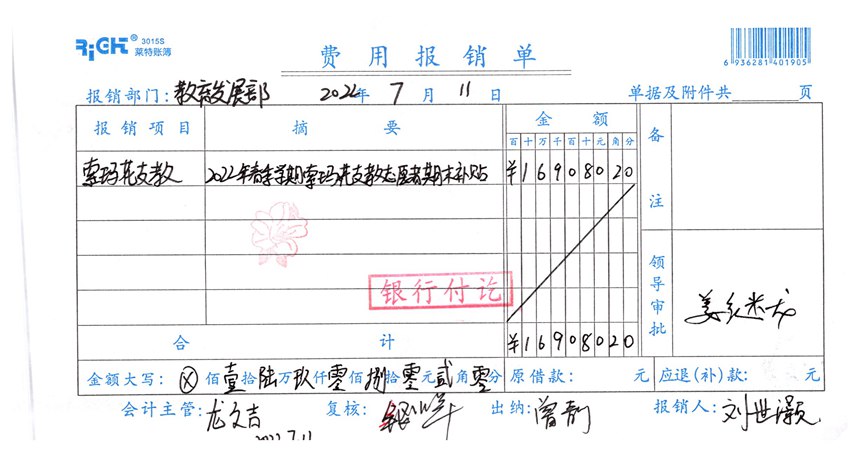 RiGHT® 3015S
莱特账簿
费用报销单
6 936281 401905
报销部门：教育发展部 2022年 7 月 11 日 单据及附件共 页
报销项目 摘要 金额 备注
百 十 万 千 百 十 元 角 分
索玛花支教 2022年春季学期索玛花支教志愿者期末补贴 ¥16908020
银行付讫
领导审批
合计 ¥16908020
金额大写：ⓧ佰壹拾陆万玖仟零佰捌拾零元贰角零分 原借款： 元 应退(补)款： 元
会计主管：龙文吉 复核： 出纳：曾 报销人：刘世灏
2022.7.11